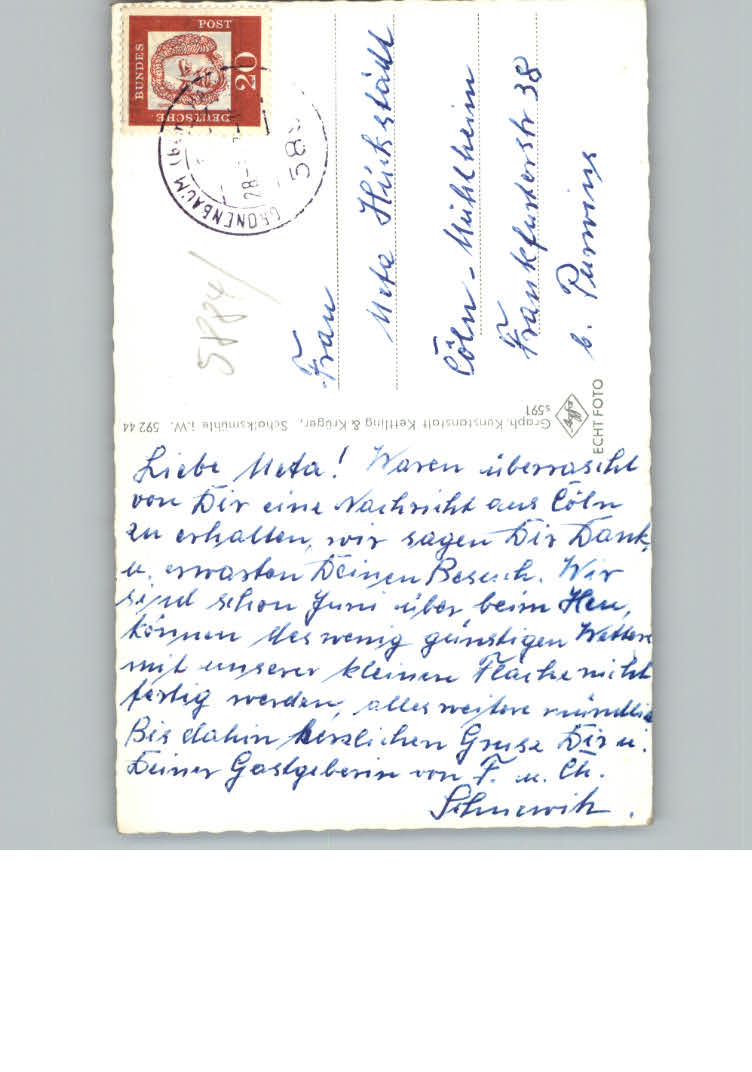 DEUTSCHE
BUNDES
POST
20
GRÖNENBAUM
28
589
5884/
Frau
Meta Hückstädt
Cöln-Mühlheim
Frankfurterstr 38
b. Purwins
Graph. Kunstanstalt Kettling & Krüger, Schalksmühle i.W. 592 44
s591
Agfa
ECHT FOTO
Liebe Meta! Waren überrascht
von Dir eine Nachricht aus Cöln
zu erhalten, wir sagen Dir Dank,
u. erwarten Deinen Besuch. Wir
sind schon Juni über beim Heu,
können des wenig günstigen Wetters
mit unserer kleinen Fläche nicht
fertig werden, alles weitere mündlich
Bis dahin herzlichen Gruss Dir u.
Deiner Gastgeberin von F. u. Ch.